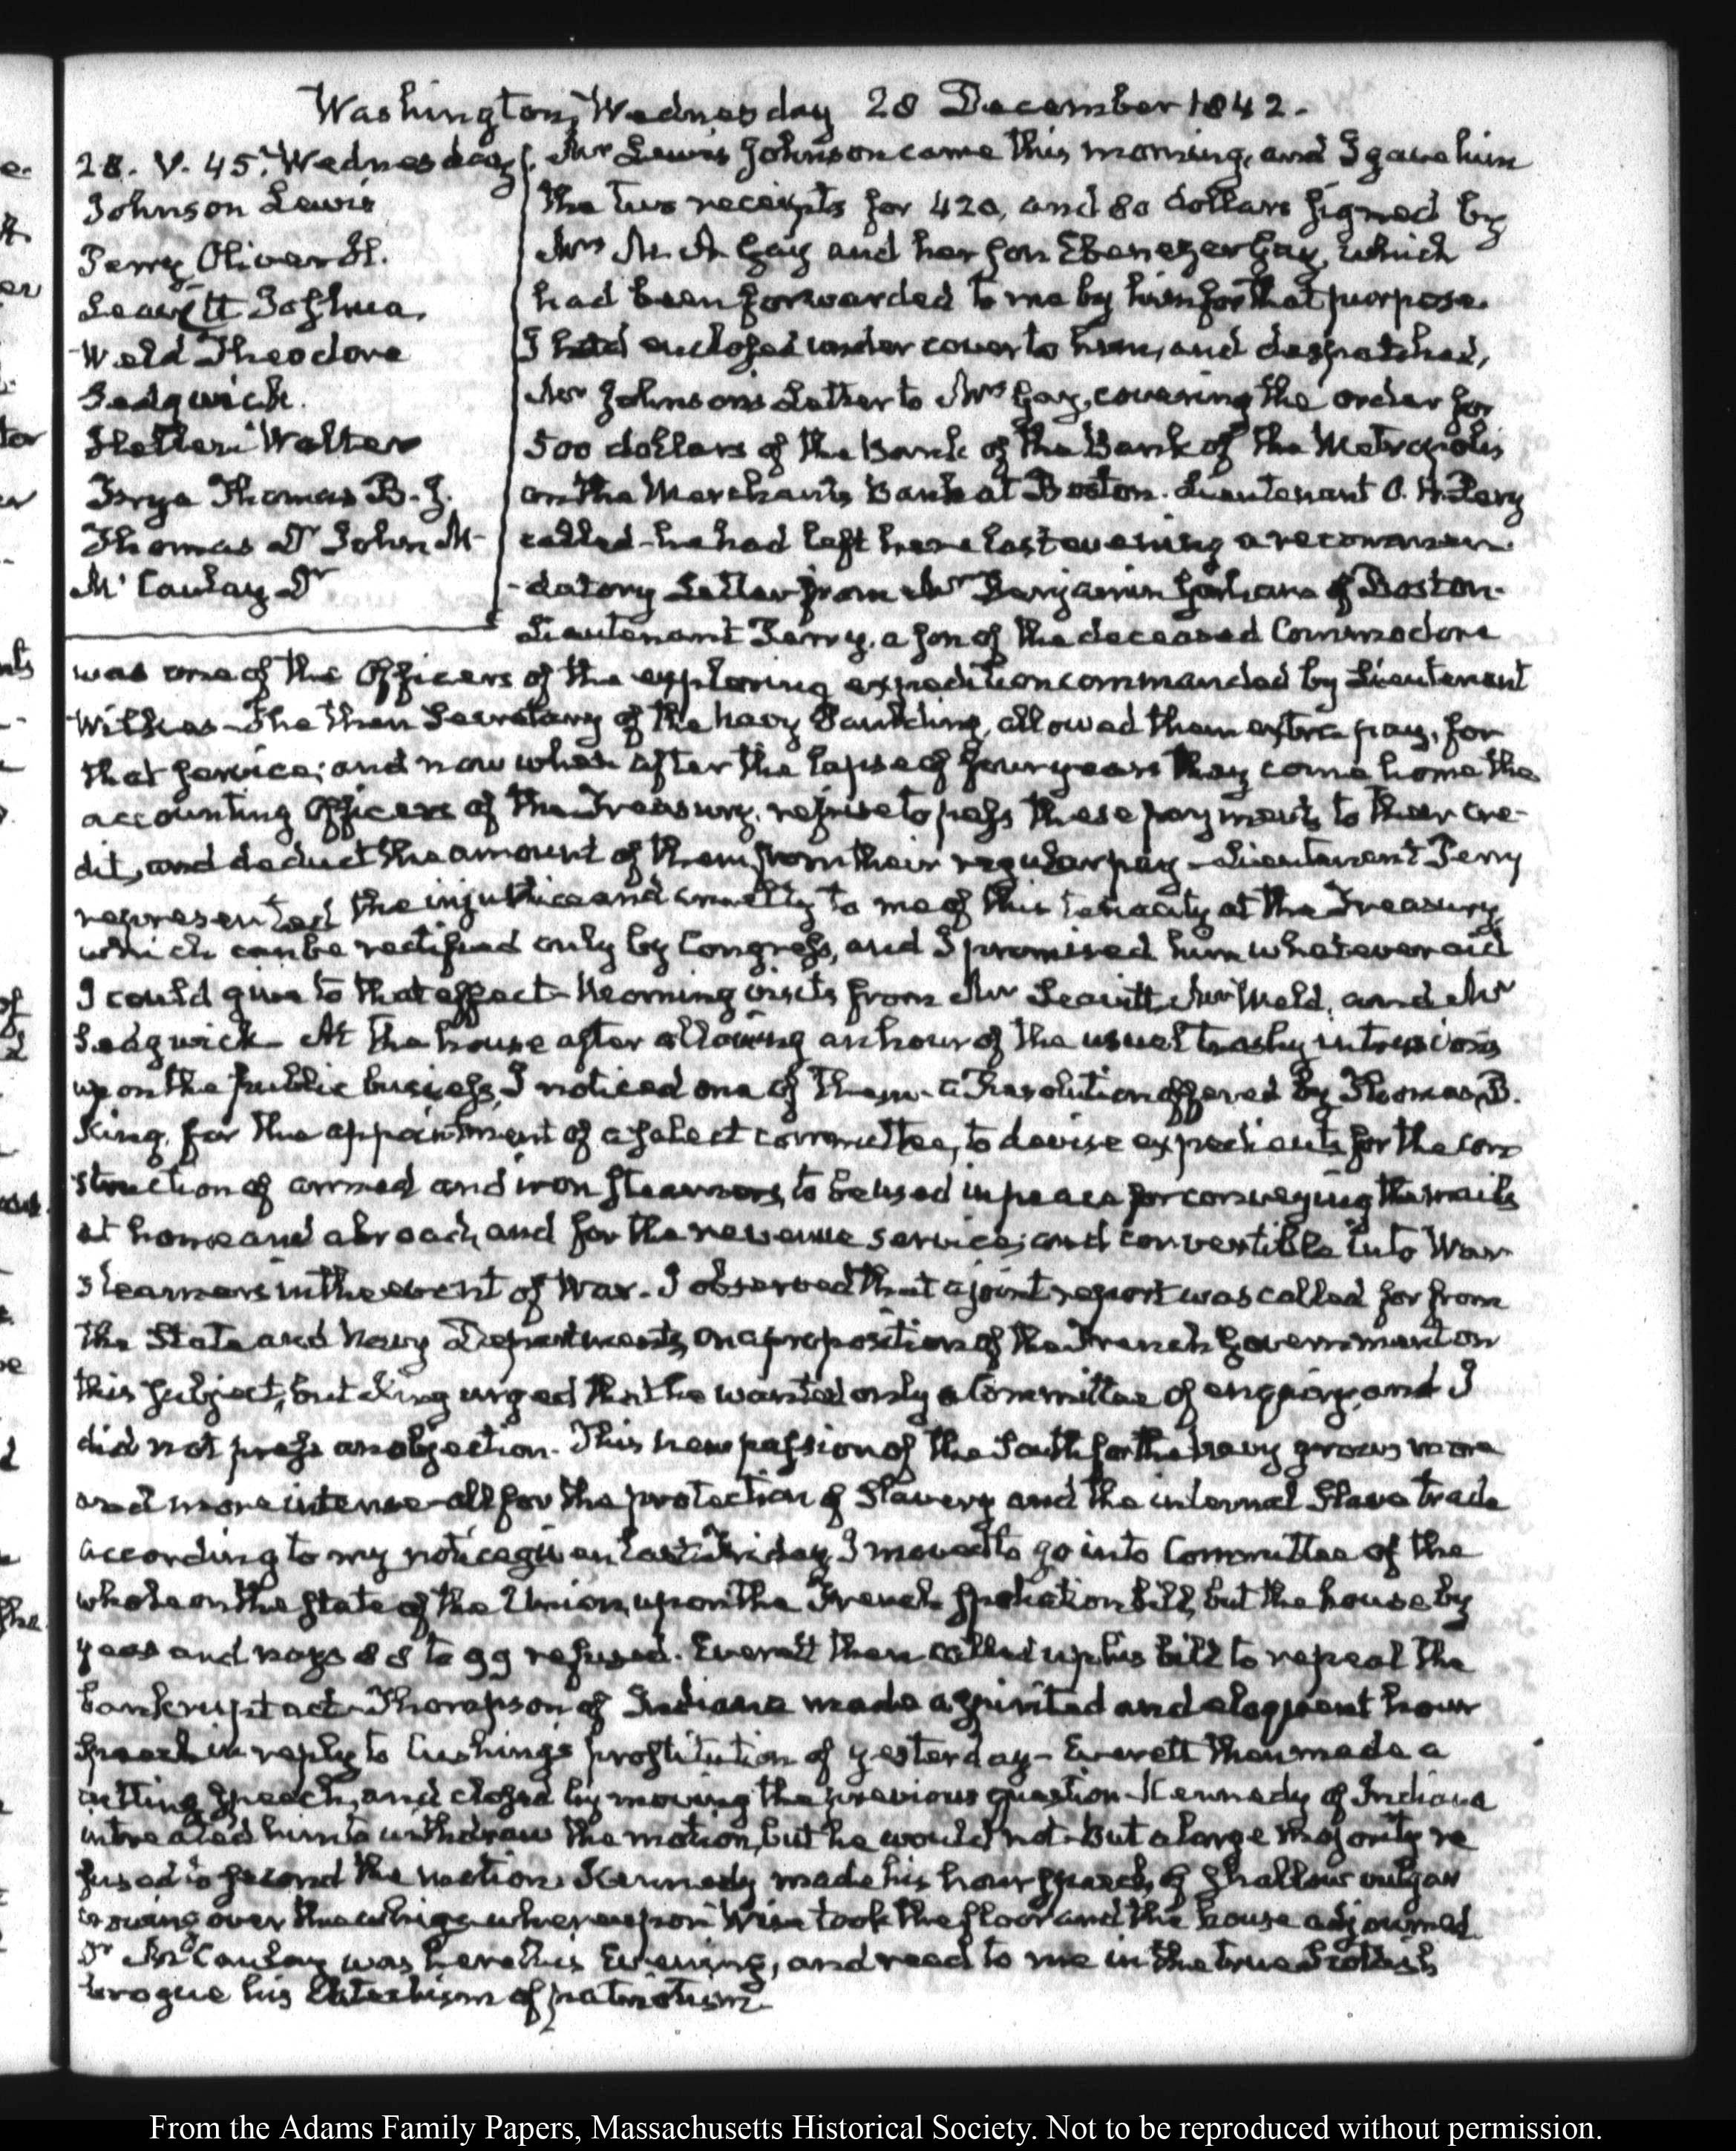 Washington, Wednesday 28 December 1842.
28. V. 45. Wednesday
Johnson Lewis
Perry Oliver H.
Leavitt Joshua.
Weld Theodore
Sedgwick.
Walter
Frye Thomas B. J.
Thomas Dr John M
McCaulay Dr
Mr Lewis Johnson came this morning, and I gave him
the two receipts for 420, and 80 dollars signed by
Mrs M. A. Gay and her son Ebenezer Gay, which
had been forwarded to me by him for that purpose.
I had enclosed under cover to him, and despatched,
Mr Johnson's Letter to Mrs Gay, covering the order for
500 dollars of the Bank of the Bank of the Metropolis
on the Merchants Bank at Boston. Lieutenant O. H. Perry
called—he had left here last evening a recommen
-datory Letter from Mr Benjamin Gorham of Boston.
Lieutenant Perry, a son of the deceased Commodore
was one of the Officers of the exploring expedition commanded by Lieutenant
Wilkes—The then Secretary of the Navy Paulding, allowed them extra pay, for
that service; and now when after the lapse of four years they come home the
accounting Officers of the Treasury, refuse to pass these payments to their cre-
dit, and deduct the amount of them from their regular pay—Lieutenant Perry
represented the injustice and cruelty to me of this tenacity at the Treasury,
which can be rectified only by Congress, and I promised him whatever aid
I could give to that effect—Morning visits from Mr Leavitt Mr Weld, and Mr
Sedgwick—At the house after allowing an hour of the usual trashy intrusions
upon the public business, I noticed one of them—a Resolution offered by Thomas B.
King, for the appointment of a select committee, to devise expedients for the con
struction of armed and iron steamers, to be used in peace for conveying the mails
at home and abroad, and for the revenue service; and convertible into War
steamers in the event of War—I observed that a joint report was called for from
the State and Navy Departments, on a proposition of the French Government on
this subject, but King urged that he wanted only a Committee of enquiry, and I
did not press an objection. This new passion of the South for the Navy grows more
and more intense—all for the protection of Slavery and the internal Slave trade
according to my notice given last Friday, I moved to go into Committee of the
whole on the state of the Union, upon the French spoliation bill, but the house by
yeas and nays 88 to 99 refused. Everett then called up his bill to repeal the
bankrupt act—Thompson of Indiana made a spirited and eloquent hour
speech in reply to Cushing's prostitution of yesterday—Everett then made a
cutting speech, and closed by moving the previous question—Kennedy of Indiana
intreated him to withdraw the motion, but he would not—But a large majority re
fused to second the motion. Kennedy made his hour speech, of shallow vulgar
crowing over the whigs—whereupon Wise took the floor and the house adjourned
Dr McCaulay was here this Evening, and read to me in the true Scottish
brogue his Catechism of patriotism.
From the Adams Family Papers, Massachusetts Historical Society. Not to be reproduced without permission.